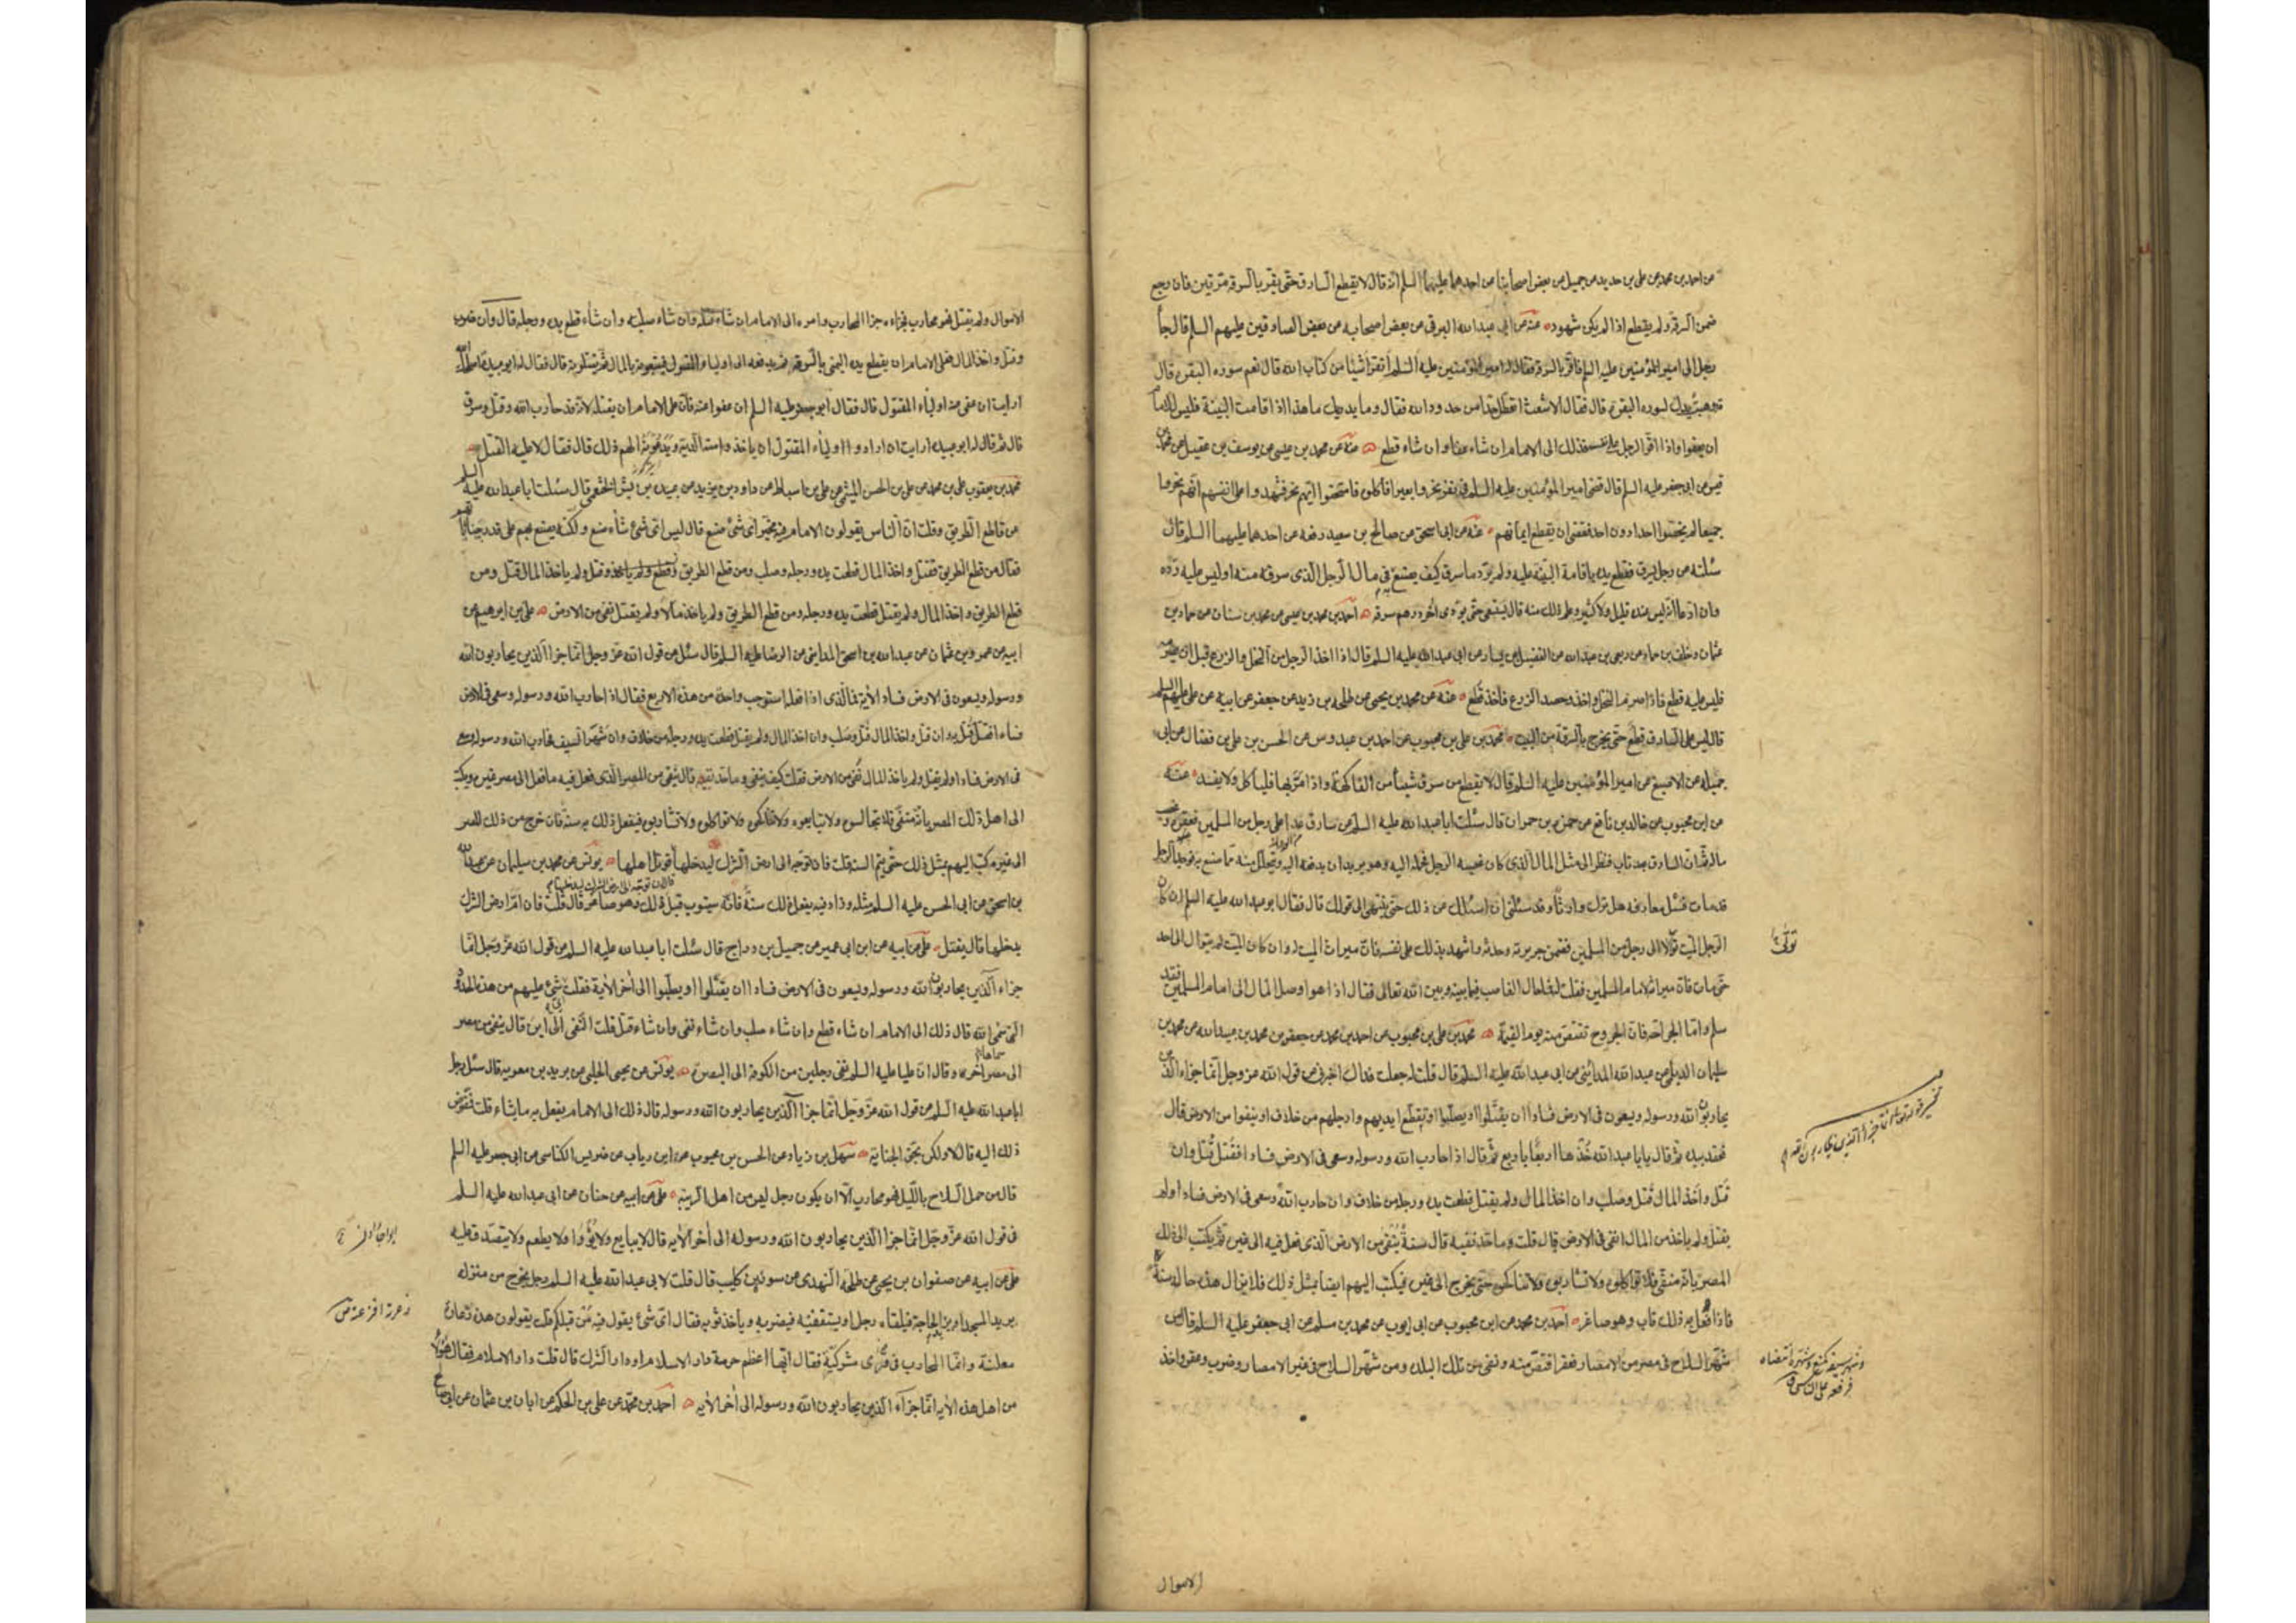 عن احمد بن محمد عن علي بن حديد عن جميل عن بعض اصحابنا عن احدهما عليهما السلم انه قال لا يقطع السارق حتى يقر بالسرقة مرتين فان رجع
ضمن السرقة ولم يقطع اذا لم يكن شهود عنه عن ابي عبد الله البرقي عن بعض اصحابه عن بعض الصادقين عليهم السلم قال جآ
رجل الى امير المؤمنين عليه السلم فاقر بالسرقة فقال له امير المؤمنين عليه السلم أتقرأ شيئا من كتاب الله قال نعم سورة البقرة قال
قد وهبت يدك لسورة البقرة قال فقال الاشعث اتعطل حدا من حدود الله فقال وما يدريك ما هذا اذا قامت البينة فليس للامام
ان يعفو واذا اقر الرجل على نفسه فذلك الى الامام ان شاء عفا وان شاء قطع عنه عن محمد بن عيسى عن يوسف بن عقيل عن محمد بن
قيس عن ابي جعفر عليه السلم قال قضى امير المؤمنين عليه السلم في نفر نحروا بعيرا فاكلوه فامتحنوا ايهم نحر فشهدوا على انفسهم انهم نحروه
جميعا لم يخصوا احدا دون احد فقضى ان يقطع ايمانهم عنه عن ابي اسحق عن صالح بن سعيد رفعه عن احدهما عليهما السلم قال
سئلته عن رجل يسرق فقطع يده باقامة البينة عليه ولم يرد ما سرق كيف يصنع به في مال الرجل الذي سرقه منه اوليس عليه رده
وان ادعى انه ليس عنده قليل ولا كثير وعلم ذلك منه قال يستسعى حتى يؤدى اخر درهم سرقه احمد بن محمد بن عيسى عن محمد بن سنان عن حماد بن
عثمان وخلف بن حماد عن ربعي بن عبد الله عن الفضيل بن يسار عن ابي عبد الله عليه السلم قال اذا اخذ الرجل من النخل والزرع قبل ان يصرم
فليس عليه قطع فاذا صرم النخل واخذ وحصد الزرع فاخذ قطع عنه عن محمد بن يحيى عن طلحة بن زيد عن جعفر عن ابيه عن علي عليهم السلم
قال ليس على السارق قطع حتى يخرج بالسرقة من البيت محمد بن علي بن محبوب عن احمد بن عبدوس عن الحسن بن علي بن فضال عن ابي
جميلة عن الاصبغ عن امير المؤمنين عليه السلم قال لا يقطع من سرق شيئا من الفاكهة واذا مر بها فليأكل ولا يفسد عنه
عن ابن محبوب عن خالد بن نافع عن حمزة بن حمران قال سئلت ابا عبد الله عليه السلم عن سارق عدا على رجل من المسلمين فعقره وغصب
ماله ثم ان السارق بعد تاب فنظر الى مثل المال الذي كان غصبه الرجل فحمله اليه وهو يريد ان يدفعه اليه ويتحلل منه مما صنع به فوجد الرجل
قد مات فسئل معارفه هل ترك وارثا وقد سئلني ان اسئلك عن ذلك حتى ينتهى الى قولك قال فقال ابو عبد الله عليه السلم ان كان
الرجل الميت توالا الى رجل من المسلمين فضمن جريرته وحدثه واشهد بذلك على نفسه فان ميراث الميت له وان كان الميت لم يتوال الى احد
حتى مات فان ميراثه لامام المسلمين فقلت له فما حال الغاصب فيما بينه وبين الله تعالى فقال اذا هو اوصل المال الى امام المسلمين فقد
سلم واما الجراحة فان الجروح تقتص منه يوم القيمة محمد بن علي بن محبوب عن احمد بن محمد عن جعفر بن محمد بن عبيد الله عن محمد بن
سليمان الديلمي عن عبد الله المدائني عن ابي عبد الله عليه السلم قال قلت له جعلت فداك اخبرني عن قول الله عز وجل انما جزاء الذين
يحاربون الله ورسوله ويسعون في الارض فسادا ان يقتلوا او يصلبوا او تقطع ايديهم وارجلهم من خلاف او ينفوا من الارض قال
فعقد بيده ثم قال يابا عبد الله خذها اربعا باربع ثم قال اذا حارب الله ورسوله وسعى في الارض فسادا فقتل قتل وان
قتل واخذ المال قتل وصلب وان اخذ المال ولم يقتل قطعت يده ورجله من خلاف وان حارب الله وسعى في الارض فسادا ولم
يقتل ولم ياخذ من المال انتفى في الارض قال قلت وما حد نفيه قال سنة ينفى من الارض الذي فعل فيه الى غيره ثم يكتب الى ذلك
المصر بانه منفي فلا تواكلوه ولا تشاربوه ولا تناكحوه حتى يخرج الى غيره فيكتب اليهم ايضا بمثل ذلك فلا يزال هذه حاله سنة
فاذا فعل به ذلك تاب وهو صاغر احمد بن محمد عن ابن محبوب عن ابي ايوب عن محمد بن مسلم عن ابي جعفر عليه السلم قال من
شهر السلاح في مصر من الامصار فعقر اقتص منه ونفى من تلك البلد ومن شهر السلاح في غير الامصار وضرب وعقر واخذ
الاموال
الاموال ولم يقتل فهو محارب فجزاءه جزاء المحارب وامره الى الامام ان شاء قتله وان شاء صلبه وان شاء قطع يده ورجله قال وان ضرب
وقتل واخذ المال فعلى الامام ان يقطع يده اليمنى بالسرقة ثم يدفعه الى اولياء المقتول فيتبعونه بالمال ثم يقتلونه قال فقال له ابو عبيدة اصلحك الله
ارايت ان عفى عنه اولياء المقتول قال فقال ابو جعفر عليه السلم ان عفوا عنه فان على الامام ان يقتله لانه قد حارب الله وقتل وسرق
قال ثم قال له ابو عبيدة ارايت ان ارادوا اولياء المقتول ان ياخذوا منه الدية ويدعونه الهم ذلك قال فقال لا عليه القتل
محمد بن يعقوب علي بن محمد عن علي بن الحسن الميثمي عن علي بن اسباط عن داود بن يزيد عن عبيدة بن بشر الخثعمي قال سئلت ابا عبد الله عليه السلم
عن قاطع الطريق وقلت ان الناس يقولون الامام فيه مخير اى شئ صنع قال ليس اى شئ شاء صنع ولكنه يصنع بهم على قدر جناياتهم
فقال من قطع الطريق فقتل واخذ المال قطعت يده ورجله وصلب ومن قطع الطريق وقتل ولم ياخذ المال قتل ومن
قطع الطريق واخذ المال ولم يقتل قطعت يده ورجله ومن قطع الطريق ولم ياخذ مالا ولم يقتل نفى من الارض علي بن ابرهيم عن
ابيه عن عمرو بن عثمان عن عبيد الله بن اسحق المدايني عن الرضا عليه السلم قال سئل عن قول الله عز وجل انما جزاء الذين يحاربون الله
ورسوله ويسعون في الارض فسادا الاية فما الذي اذا فعله استوجب واحدة من هذه الاربع فقال اذا حارب الله ورسوله وسعى في الارض
فسادا فقتل قتل به وان قتل واخذ المال قتل وصلب وان اخذ المال ولم يقتل قطعت يده ورجله من خلاف وان شهر السيف فحارب الله ورسوله وسعى
في الارض فسادا ولم يقتل ولم ياخذ المال نفى من الارض فقلت كيف ينفى وما حد نفيه قال ينفى من المصر الذي فعل فيه ما فعل الى مصر غيره ويكتب
الى اهل ذلك المصر بانه منفي فلا تجالسوه ولا تبايعوه ولا تناكحوه ولا تواكلوه ولا تشاربوه فيفعل ذلك به سنة فان خرج من ذلك المصر
الى غيره كتب اليهم بمثل ذلك حتى يتم السنة قلت فان توجه الى ارض الشرك ليدخلها قوتل اهلها يونس عن محمد بن سليمان عن عبيد الله
بن اسحق عن ابي الحسن عليه السلم مثله وزاد فيه يفعل ذلك سنة فانه سيتوب قبل ذلك وهو صاغر قال قلت فان ام ارض الشرك
يدخلها قال يقتل علي عن ابيه عن ابن ابي عمير عن جميل بن دراج قال سئلت ابا عبد الله عليه السلم عن قول الله عز وجل انما
جزاء الذين يحاربون الله ورسوله ويسعون في الارض فسادا ان يقتلوا او يصلبوا الى اخر الاية فقلت اى شئ عليهم من هذه الحدود
التي سمى الله قال ذلك الى الامام ان شاء قطع وان شاء صلب وان شاء نفى وان شاء قتل قلت النفي الى اين قال ينفى من مصر
الى مصر اخر وقال ان عليا عليه السلم نفى رجلين من الكوفة الى البصرة يونس عن يحيى الحلبي عن بريد بن معوية قال سئل رجل
ابا عبد الله عليه السلم عن قول الله عز وجل انما جزاء الذين يحاربون الله ورسوله قال ذلك الى الامام يفعل به ما يشاء قلت فمفوض
ذلك اليه قال لا ولكن بحق الجناية سهل بن زياد عن الحسن بن محبوب عن ابن رياب عن ضريس الكناسي عن ابي جعفر عليه السلم
قال من حمل السلاح بالليل فهو محارب الا ان يكون رجل ليس من اهل الريبة علي عن ابيه عن حنان عن ابي عبد الله عليه السلم
في قول الله عز وجل انما جزاء الذين يحاربون الله ورسوله الى اخر الاية قال لا يبايع ولا يؤوا ولا يطعم ولا يتصدق عليه
علي عن ابيه عن صفوان بن يحيى عن طلحة النهدي عن سورة بن كليب قال قلت لابي عبد الله عليه السلم رجل يخرج من منزله
يريد المسجد او يريد الحاجة فيلقاه رجل او يستقفيه فيضربه وياخذ ثوبه فقال اى شئ يقول فيه من قبلكم قلت يقولون هذه دعارة
معلنة وانما المحارب في قرى مشركية فقال ايها اعظم حرمة دار الاسلام او دار الشرك قال قلت دار الاسلام فقال هؤلاء
من اهل هذه الاية انما جزآء الذين يحاربون الله ورسوله الى اخر الاية احمد بن محمد عن علي بن الحكم عن ابان بن عثمان عن ابي صالح